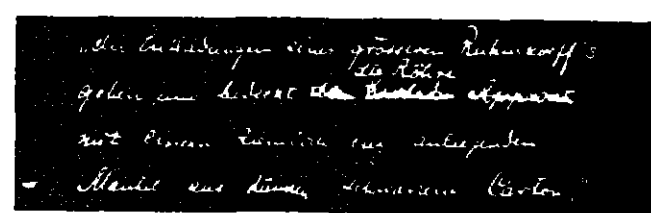 "die Entladungen eines grösseren Ruhmkorff's
die Röhre
gehen und bedeckt Apparat
mit einem ziemlich eng anliegenden
Mantel aus dünnem schwarzem Carton,